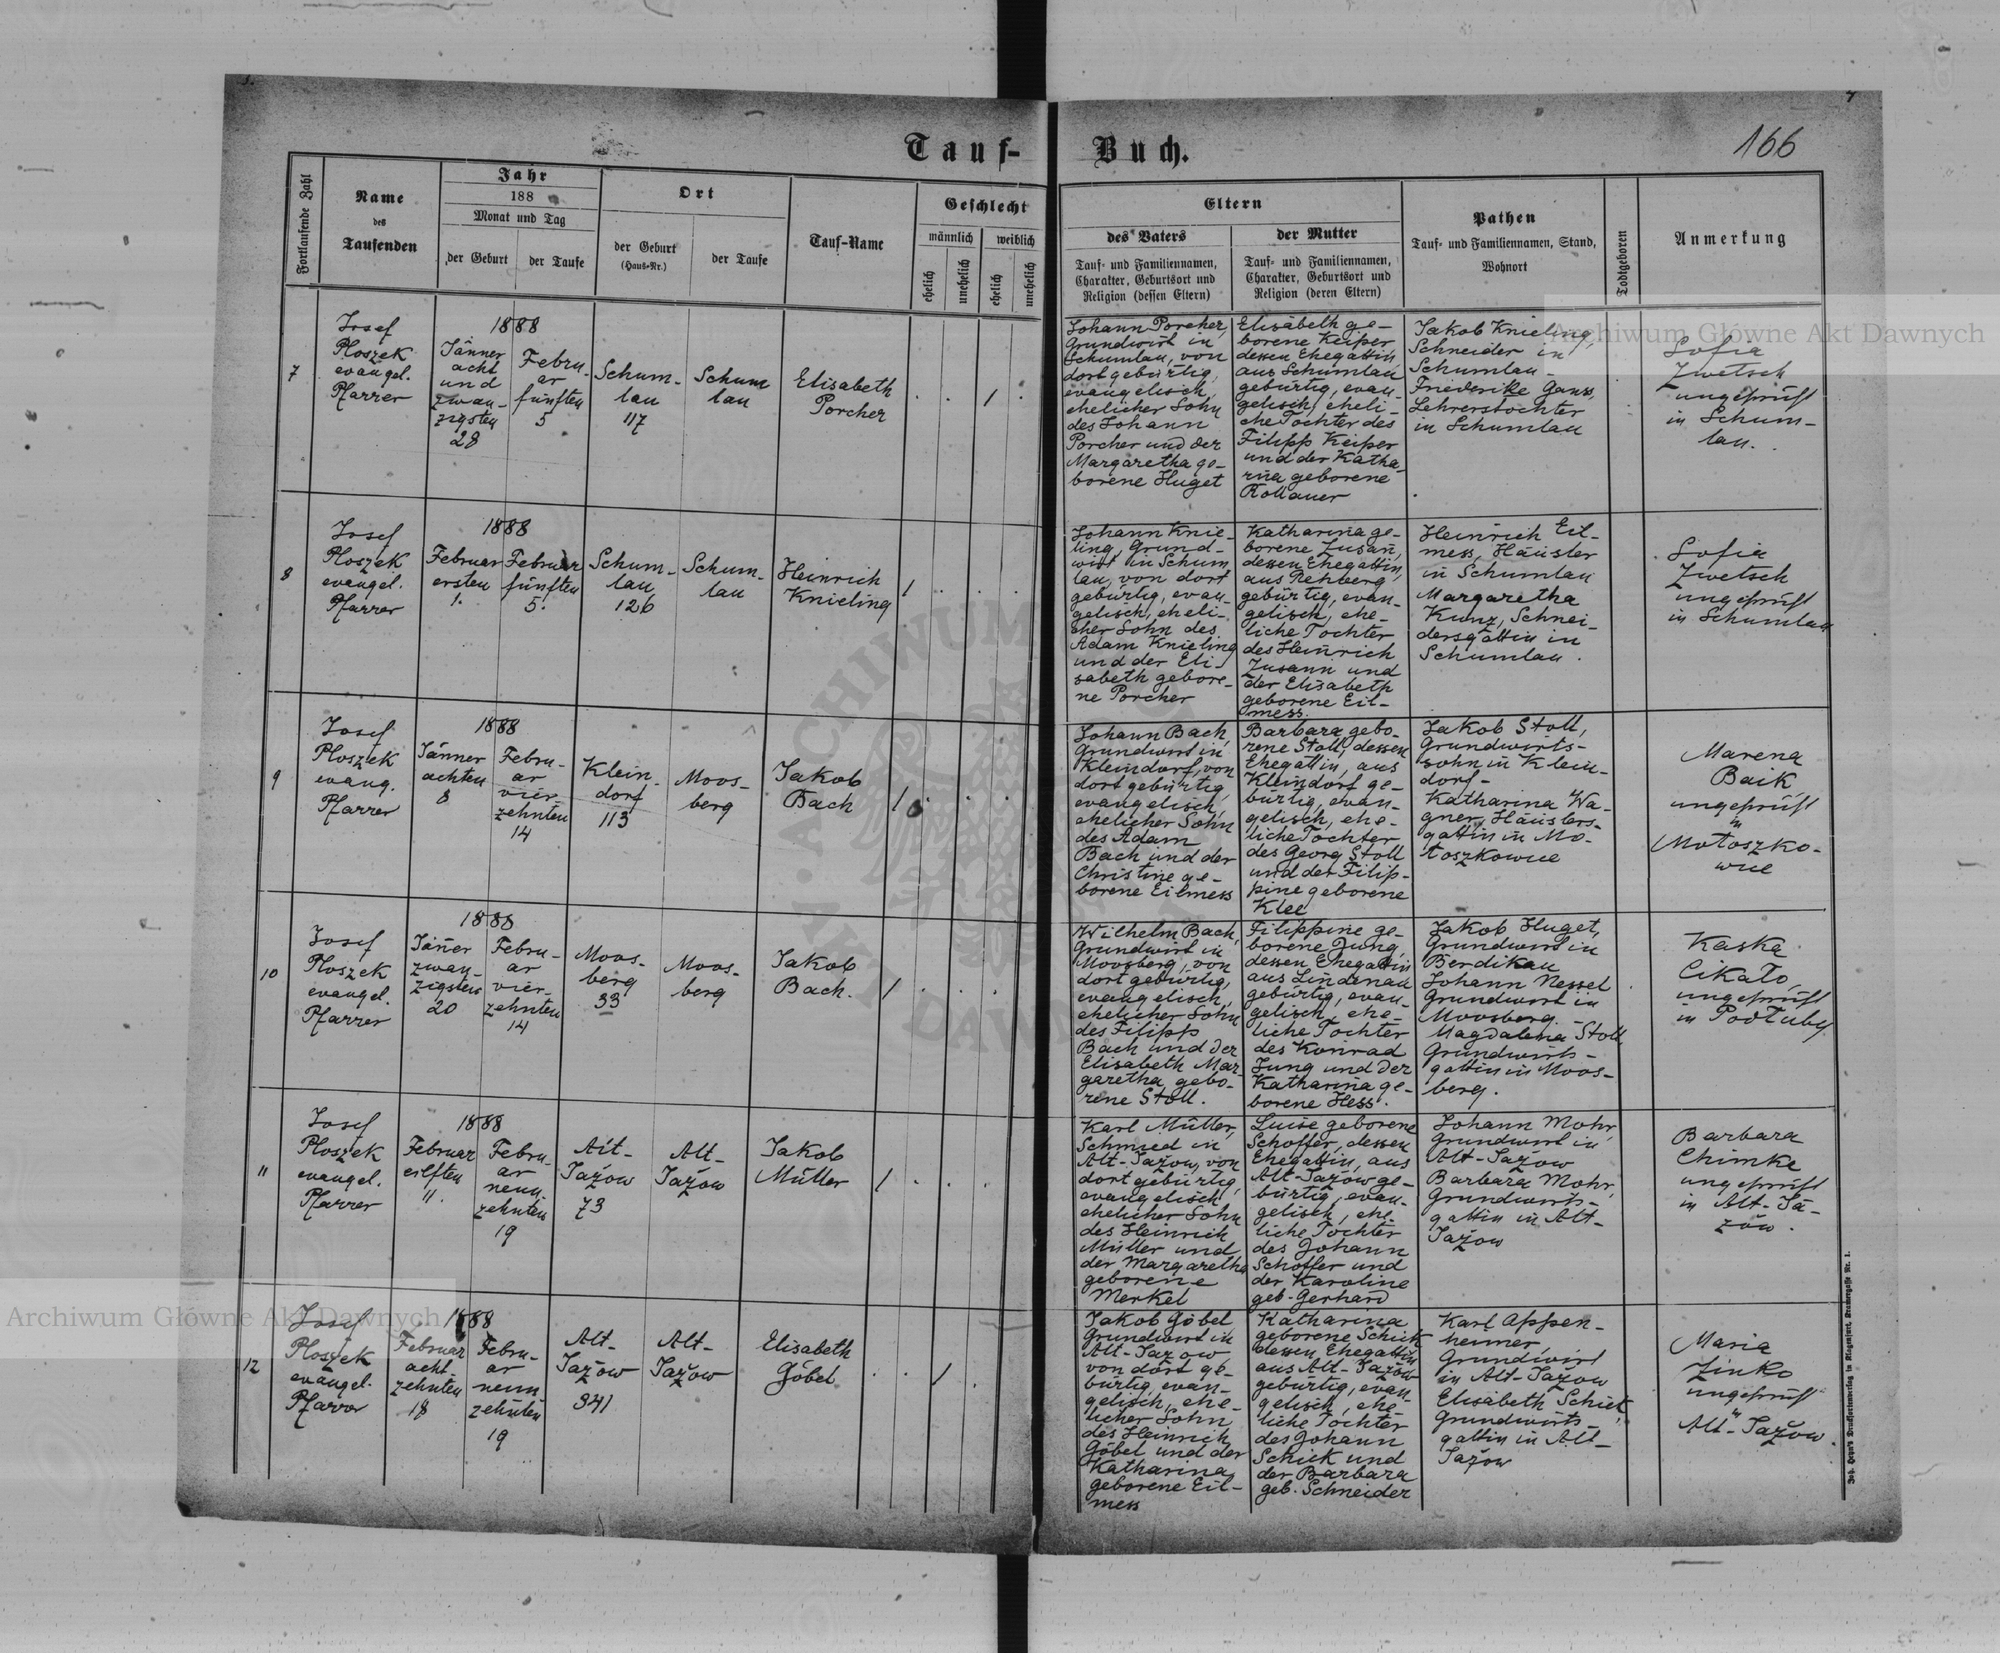 Tauf-
Buch.
166
Fortlaufende Zahl
Name
des
Taufenden
Jahr
188
Monat und Tag
der Geburt
der Taufe
Ort
der Geburt
(Haus-Nr.)
der Taufe
Tauf-Name
Geschlecht
männlich
weiblich
ehelich
unehelich
ehelich
unehelich
Eltern
des Vaters
Tauf- und Familiennamen,
Charakter, Geburtsort und
Religion (dessen Eltern)
der Mutter
Tauf- und Familiennamen,
Charakter, Geburtsort und
Religion (deren Eltern)
Pathen
Tauf- und Familiennamen, Stand,
Wohnort
Todtgeboren
Anmerkung
7
Josef
Ploszek
evangel.
Pfarrer
1888
Jänner
acht
und
zwan-
zigsten
28
Febru-
ar
fünften
5
Schum-
lau
117
Schum
lau
Elisabeth
Porcher
Johann Porcher,
Grundwirt in
Schumlau, von
dort gebürtig,
evangelisch,
ehelicher Sohn
des Johann
Porcher und der
Margaretha ge-
borene Huget
Elisabeth ge-
borene Keiper
dessen Ehegattin
aus Schumlau
gebürtig, evan-
gelisch, eheli-
che Tochter des
Filipp Keiper
und der Katha-
rina geborene
Rollauer
Jakob Knieling,
Schneider in
Schumlau-
Friederike Ganss,
Lehrerstochter
in Schumlau
Sofia
Zwetsch
ungeprüft
in Schum-
lau.
8
Josef
Ploszek
evangel.
Pfarrer
1888
Februar
ersten
1.
Februar
fünften
5.
Schum-
lau,
126
Schum-
lau
Heinrich
Knieling
Johann Knie-
ling, Grund-
wirt in Schum
lau, von dort
gebürtig, evan-
gelisch, eheli-
cher Sohn des
Adam Knieling
und der Eli-
sabeth gebore-
ne Porcher
Katharina ge-
borene Zusan̄,
dessen Ehegattin,
aus Rehberg
gebürtig, evan-
gelisch, ehe-
liche Tochter
des Heinrich
Zusann und
der Elisabeth
geborene Eil-
mess.
Heinrich Eil-
mess, Häusler
in Schumlau
Margaretha
Kunz, Schnei-
dersgattin in
Schumlau.
Sofia
Zwetsch
ungeprüft
in Schumlau
9
Josef
Ploszek
evang.
Pfarrer
1888
Jänner
achten
8
Febru-
ar
vier-
zehnten
14
Klein-
dorf
113
Moos-
berg
Jakob
Bach
Johann Bach,
Grundwirt in
Kleindorf, von
dort gebürtig,
evangelisch,
ehelicher Sohn
des Adam
Bach und der
Christine ge-
borene Eilmess
Barbara gebo-
rene Stoll, dessen
Ehegattin, aus
Kleindorf ge-
bürtig, evan-
gelisch, ehe-
liche Tochter
des Georg Stoll
und der Filip-
pine geborene
Klee
Jakob Stoll,
Grundwirts-
sohn in Klein-
dorf-
Katharina Wa-
gner, Häuslers-
gattin in Mo-
łoszkowice
Marena
Baik
ungeprüft
in
Mołoszko-
wice
10
Josef
Ploszek
evangel.
Pfarrer
1888
Jän̄er
zwan-
zigsten
20
Febru-
ar
vier-
zehnten
14
Moos-
berg
33
Moos-
berg
Jakob
Bach.
Wilhelm Bach,
Grundwirt in
Moosberg, von
dort gebürtig,
evangelisch,
ehelicher Sohn
des Filipp
Bach und der
Elisabeth Mar
garetha gebo-
rene Stoll.
Filippine ge-
borene Jung,
dessen Ehegattin
aus Lindenau
gebürtig, evan-
gelisch, ehe-
liche Tochter
des Konrad
Jung und der
Katharina ge-
borene Hess.
Jakob Huget,
Grundwirt in
Berdikau
Johann Nessel
Grundwirt in
Moosberg.
Magdalena Stoll
Grundwirts-
gattin in Moos-
berg.
Kaska
Cikało,
ungeprüft
in Podłuby
11
Josef
Ploszek
evangel.
Pfarrer
1888
Februar
eilften
11.
Febru-
ar
neun-
zehnten
19
Alt-
Jažow
73
Alt-
Jažow
Jakob
Müller
Karl Müller,
Schmied in
Alt-Jažow, von
dort gebürtig,
evangelisch
ehelicher Sohn
des Heinrich
Müller und
der Margaretha
geborene
Merkel
Luise geborene
Schoffer, dessen
Ehegattin, aus
Alt-Jažow ge-
bürtig, evan-
gelisch, ehe-
liche Tochter
des Johann
Schoffer und
der Karoline
geb. Gerhard
Johann Mohr,
Grundwirt in
Alt-Jažow
Barbara Mohr,
Grundwirts-
gattin in Alt-
Jažow
Barbara
Chimke
ungeprüft
in Alt-Ja-
žow.
12
Josef
Ploszek
evangel.
Pfarrer
1888
Februar
acht-
zehnten
18
Febru-
ar
neun
zehnten
19
Alt-
Jažow
341
Alt-
Jažow
Elisabeth
Göbel
Jakob Göbel
Grundwirt in
Alt-Jazow
von dort ge-
bürtig, evan-
gelisch, ehe-
licher Sohn
des Heinrich
Göbel und der
Katharina
geborene Eil-
mess
Katharina
geborene Schick
dessen Ehegattin
aus Alt-Jažow
gebürtig, evan-
gelisch, ehe-
liche Tochter
des Johann
Schick und
der Barbara
geb. Schneider
Karl Appen-
heimer
Grundwirt
in Alt-Jažow
Elisabeth Schick
Grundwirts-
gattin in Alt-
Jažow
Maria
Zinko
ungeprüft
in
Alt-Jažow.
Archiwum Główne Akt Dawnych
Archiwum Główne Akt Dawnych